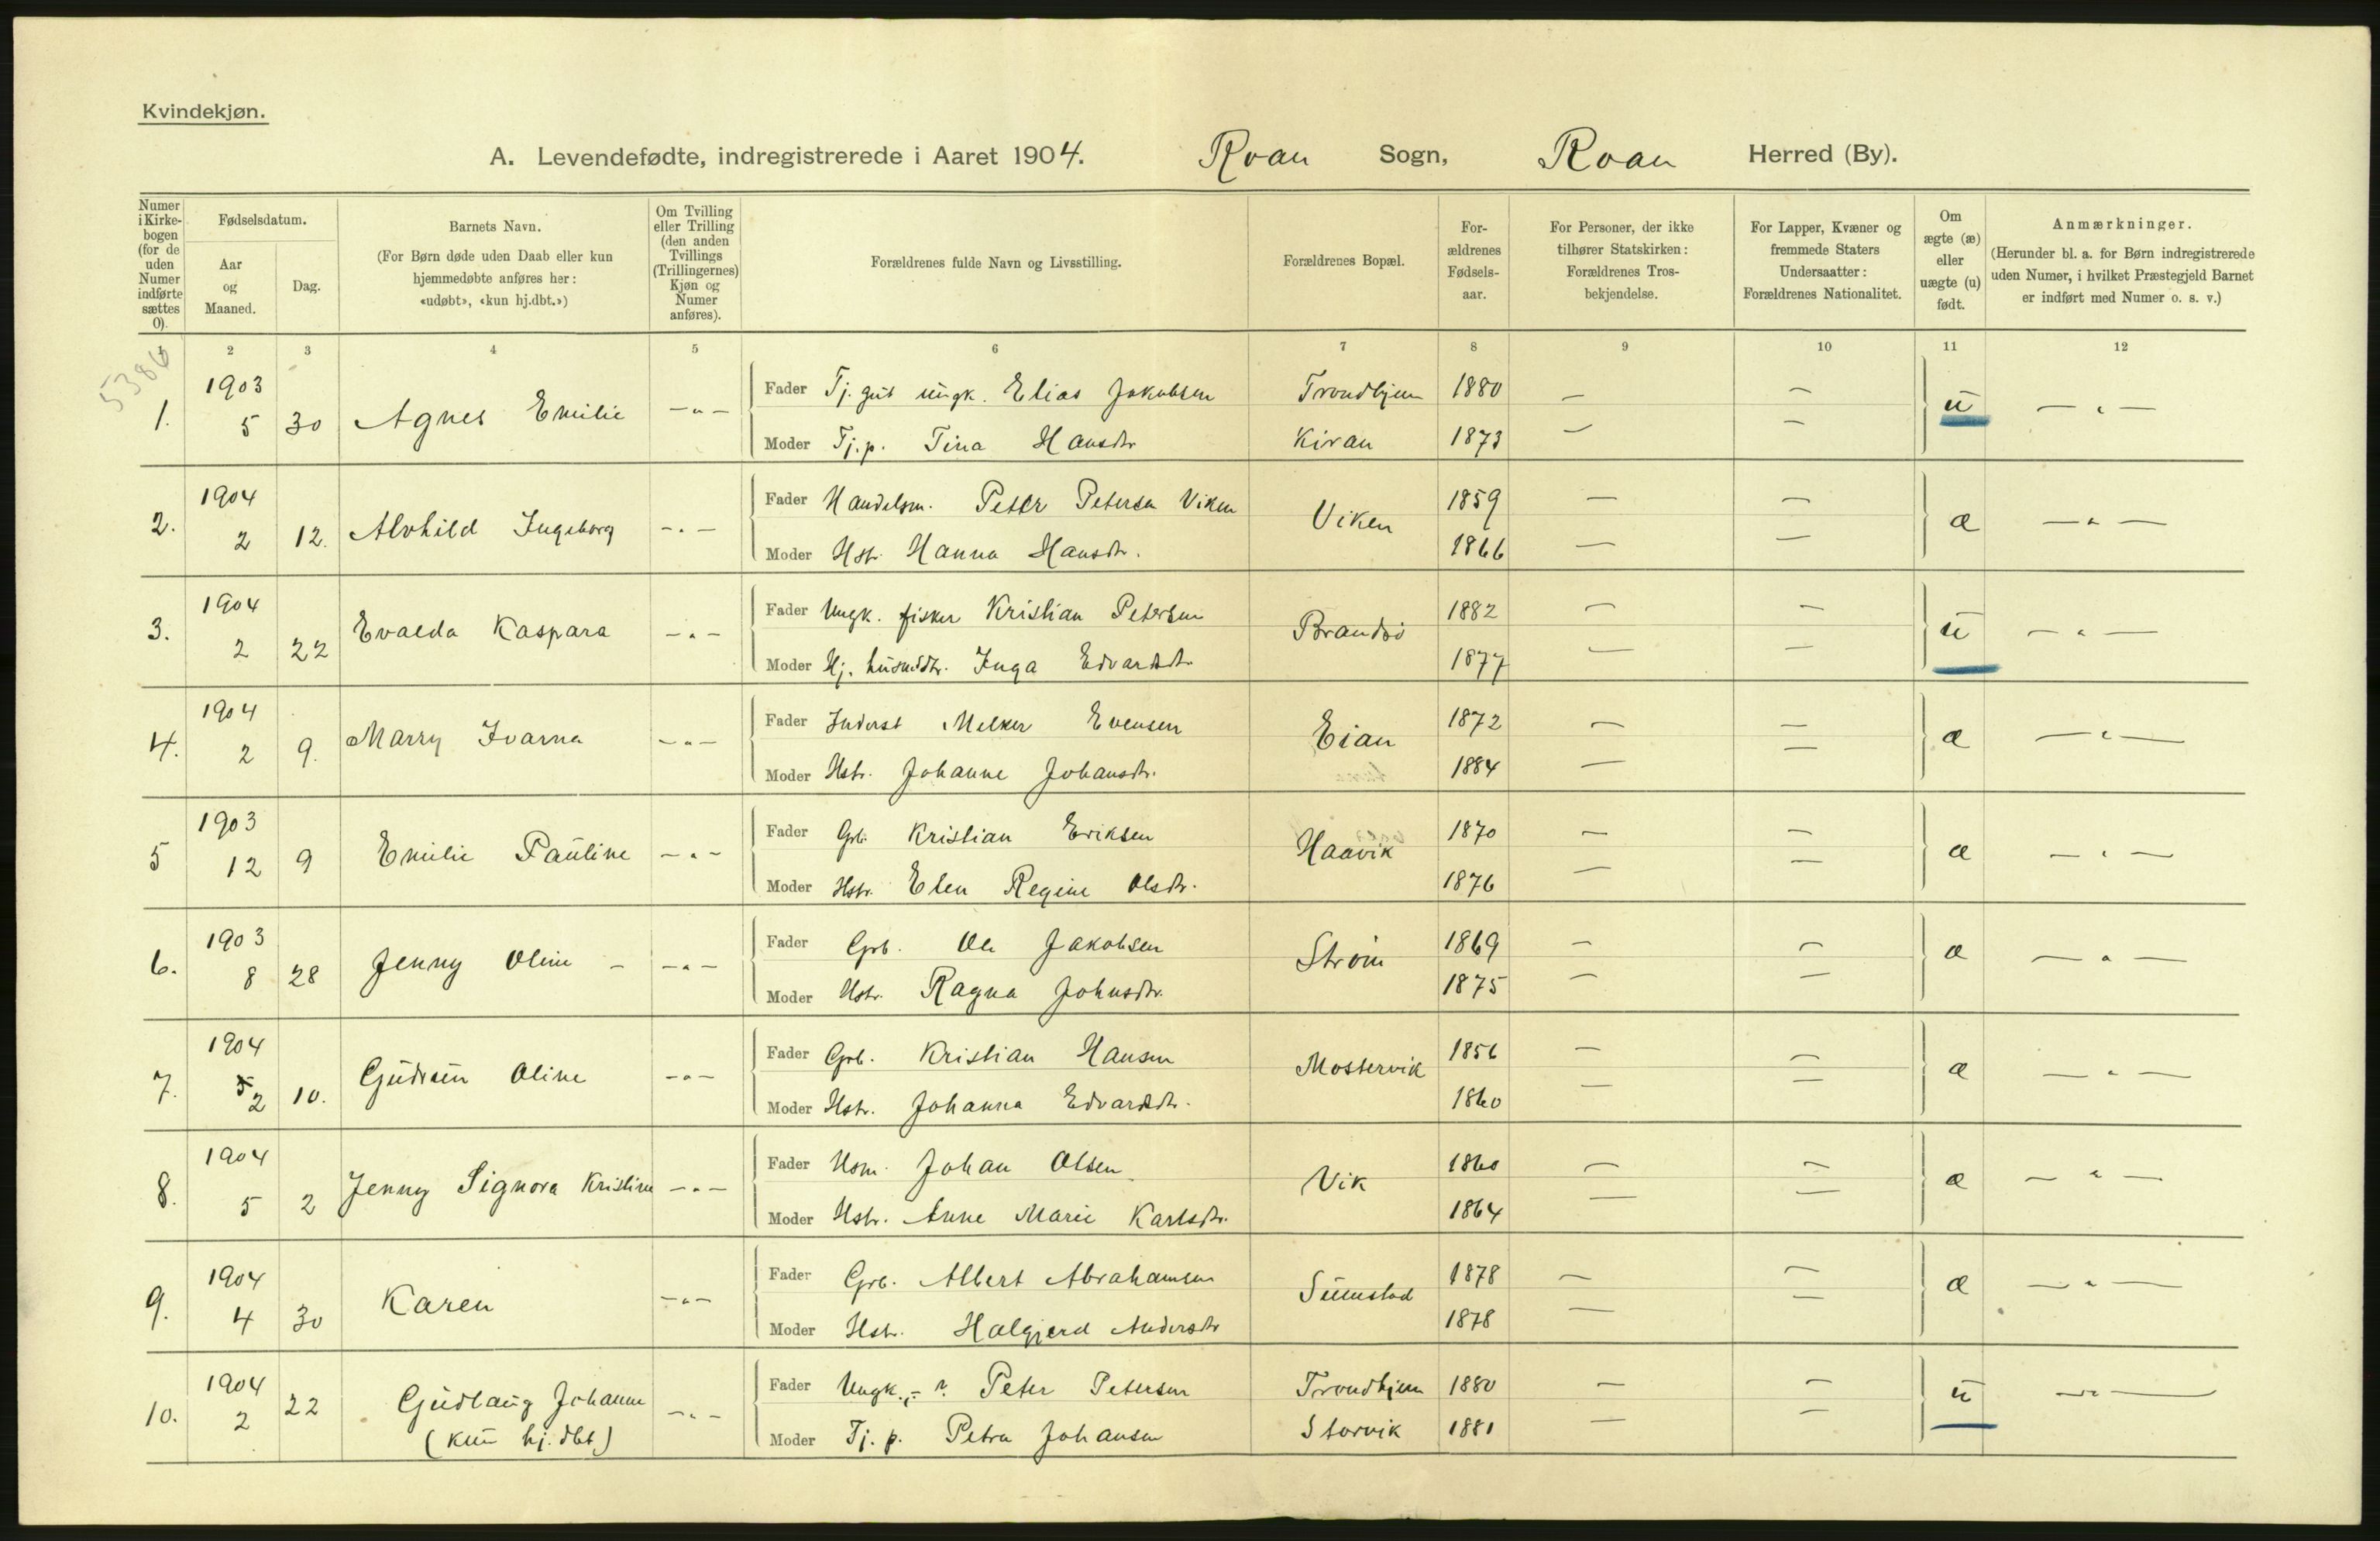 Kvindekjøn.
A. Levendefødte, indregistrerede i Aaret 1904. Roan Sogn, Roan Herred (By).
Numer i Kirkebogen (for de uden Numer indførte sættes 0).
Fødselsdatum.
Aar og Maaned.
Dag.
Barnets Navn.
(For Børn døde uden Daab eller kun hjemmedøbte anføres her: «udøbt», «kun hj.dbt.»)
Om Tvilling eller Trilling (den anden Tvillings (Trillingernes) Kjøn og Numer anføres).
Forældrenes fulde Navn og Livsstilling.
Forældrenes Bopæl.
Forældrenes Fødselsaar.
For Personer, der ikke tilhører Statskirken: Forældrenes Trosbekjendelse.
For Lapper, Kvæner og fremmede Staters Undersaatter: Forældrenes Nationalitet.
Om ægte (æ) eller uægte (u) født.
Anmærkninger.
(Herunder bl. a. for Børn indregistrerede uden Numer, i hvilket Præstegjeld Barnet er indført med Numer o. s. v.)
1 2 3 4 5 6 7 8 9 10 11 12
5386
1. 1903 5 30 Agnes Emilie -"- Fader Tj. gut ungk. Elias Jakobsen Trondhjem 1880 — — u — " —
Moder Tj.p. Tina Hansdtr Kiran 1873 — —
2. 1904 2 12. Alvhild Ingeborg -"- Fader Handelsm. Peter Petersen Viken Viken 1859 — — æ — " —
Moder Hstr. Hanna Hansdtr. 1866 — —
3. 1904 2 22 Evalda Kaspara -"- Fader Ungk. fisker Kristian Petersen Brandsö 1882 — — u — " —
Moder Hj. husmdtr. Inga Edvardsdtr. 1877 — —
4. 1904 2 9. Marry Ivarna -"- Fader Inderst Melker Evensen Eian 1872 — — æ — " —
Moder Hstr. Johanne Johansdtr. 1884 — —
5 1903 12 9 Emilie Pauline -"- Fader Grb. Kristian Eriksen Haavik 1870 — — æ — " —
Moder Hstr. Elen Regine Olsdtr. 1876 — —
6. 1903 8 28 Jenny Oline - -"- Fader Grb. Ole Jakobsen Ström 1869 — — æ — " —
Moder Hstr. Ragna Johnsdtr. 1875 — —
7. 1904 2 10. Gudrun Oline -"- Fader Grb. Kristian Hansen Mostervik 1856 — — æ — " —
Moder Hstr. Johanna Edvardsdtr. 1860 — —
8. 1904 5 2 Jenny Signora Kristine -"- Fader Hsm. Johan Olsen Vik 1860 — — æ — " —
Moder Hstr. Anne Marie Karlsdtr. 1864 — —
9. 1904 4 30 Karen -"- Fader Grb. Albert Abrahamsen Sumstad 1878 — — æ — " —
Moder Hstr. Halgjerd Andersdtr 1878 — —
10. 1904 2 22 Gudlaug Johanne -"- Fader Ungk., - ?. Peter Petersen Trondhjem 1880 — — u — " —
(kun hj. dbt) Moder Tj. p. Petra Johansen Storvik 1881 — —